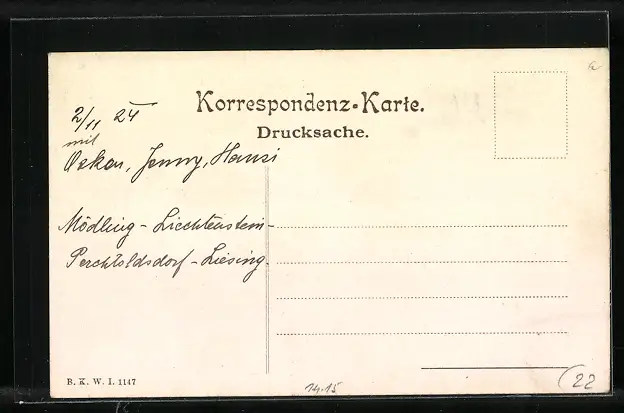 Korrespondenz-Karte.
Drucksache.
2/11 24
mit
Oskar, Jenny, Hansi
Mödling - Liechtenstein -
Perchtoldsdorf - Liesing.
B. K. W. I. 1147
14.15
(22